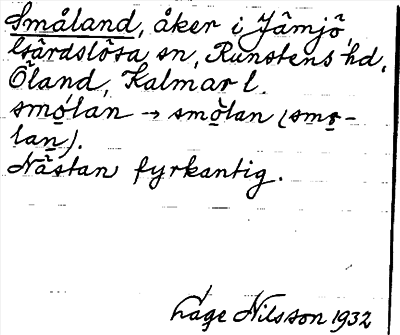 Småland, åker i Jämjö,
Gärdslösa sn, Runstens hd,
Öland, Kalmar l.
smo̱lan → smo̱lan (smo̱-
lan).
Nästan fyrkantig.
Lage Nilsson 1932